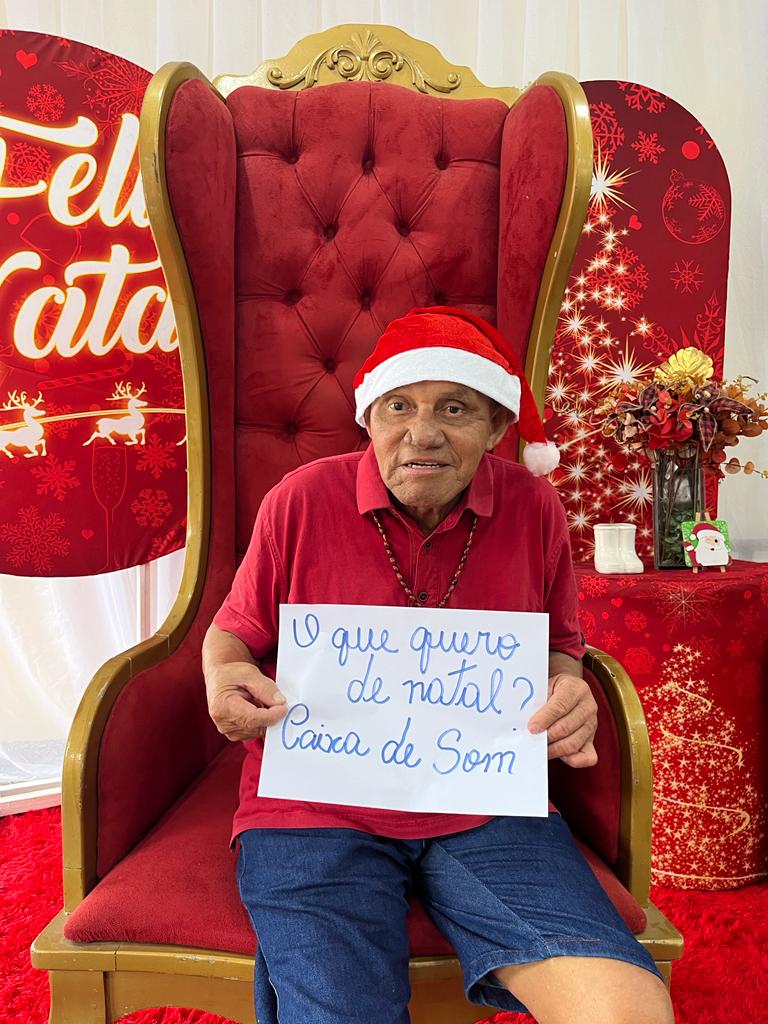 Feli
Nata
O que quero
de natal?
Caixa de Som